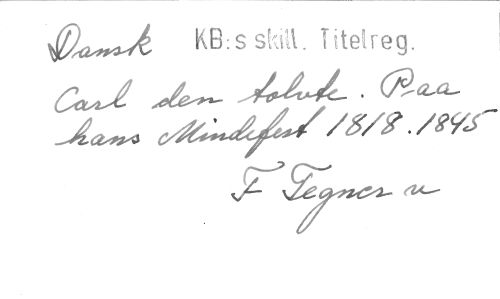 Dansk KB:s skill. Titelreg.
Carl den tolvte. Paa
hans Mindefest 1818. 1845
F Tegner v